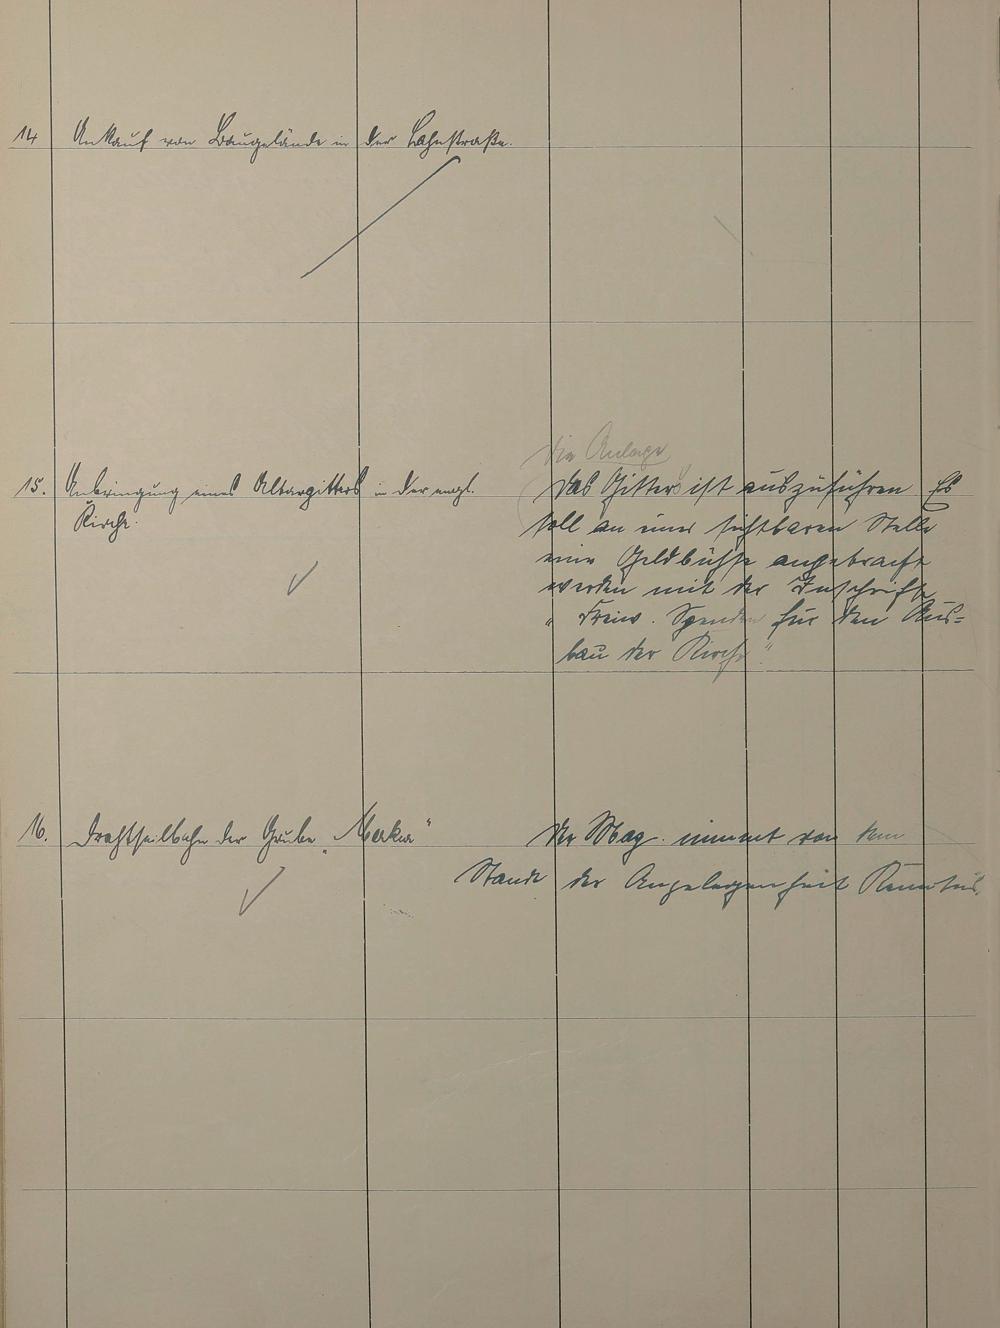 14 Ankauf von Baugelände in der Lahnstraße.
Die Anlage
15. Anbringung eines Altargitters in der engl.
Kirche.
Das Gitter ist auszuführen Es
soll an einer sichtbaren Stelle
eine Geldbüchse angebracht
werden mit der Inschrift
"Freiw. Spenden für den Aus=
bau der Kirche"
16. Drahtseilbahn der Grube
Der Mag. nimmt von dem
Stande der Angelegenheit Kenntnis.